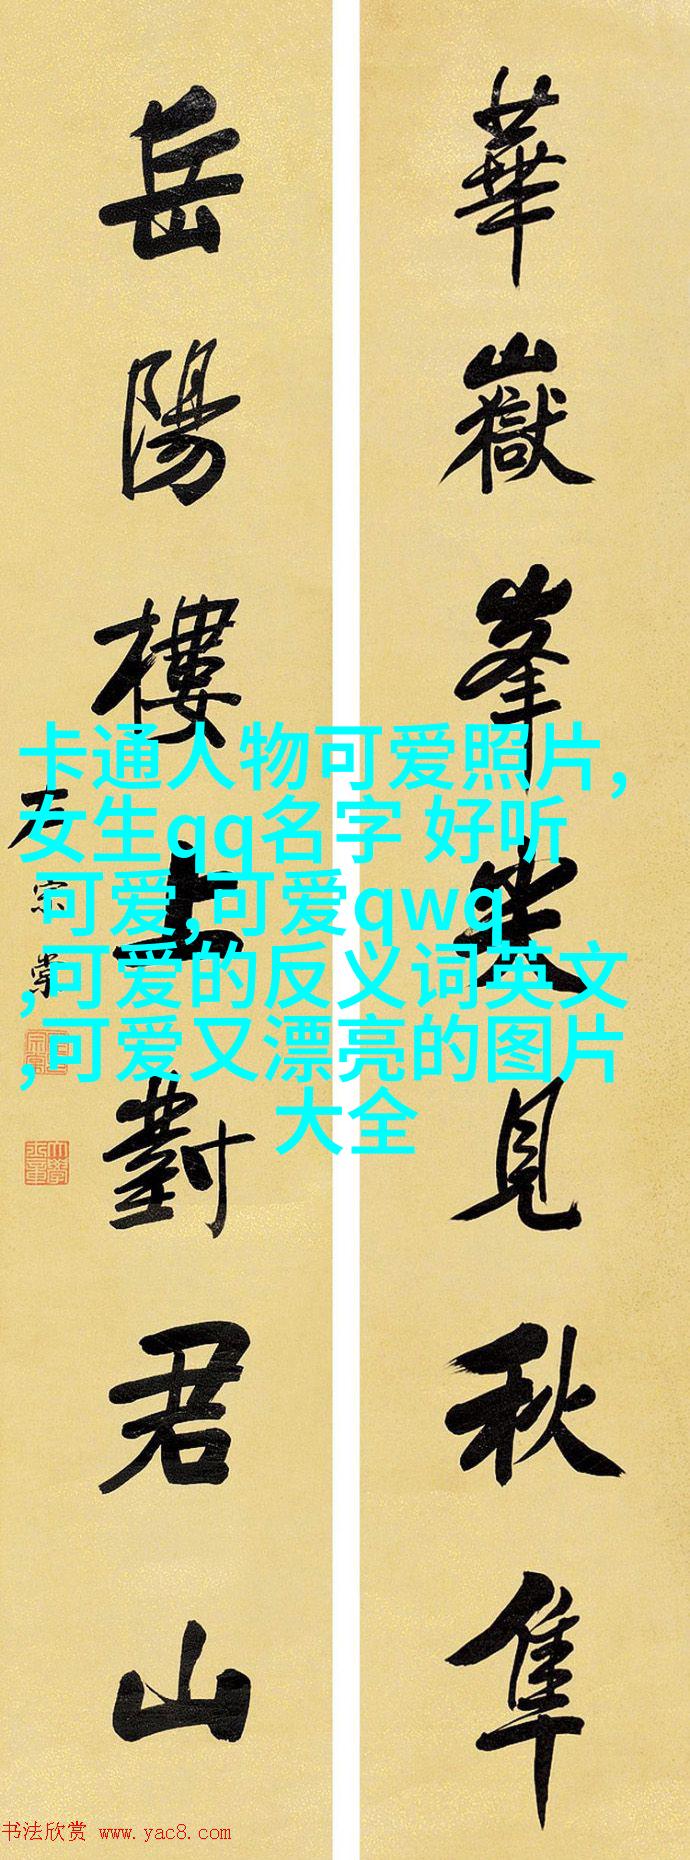 華嶽峯尖見秋隼
岳陽樓上對君山
左宗棠
卡通人物可爱照片,
女生qq名字 好听
可爱,可爱qwq
,可爱的反义词英文
,可爱又漂亮的图片
大全
书法欣赏 www.yac8.com